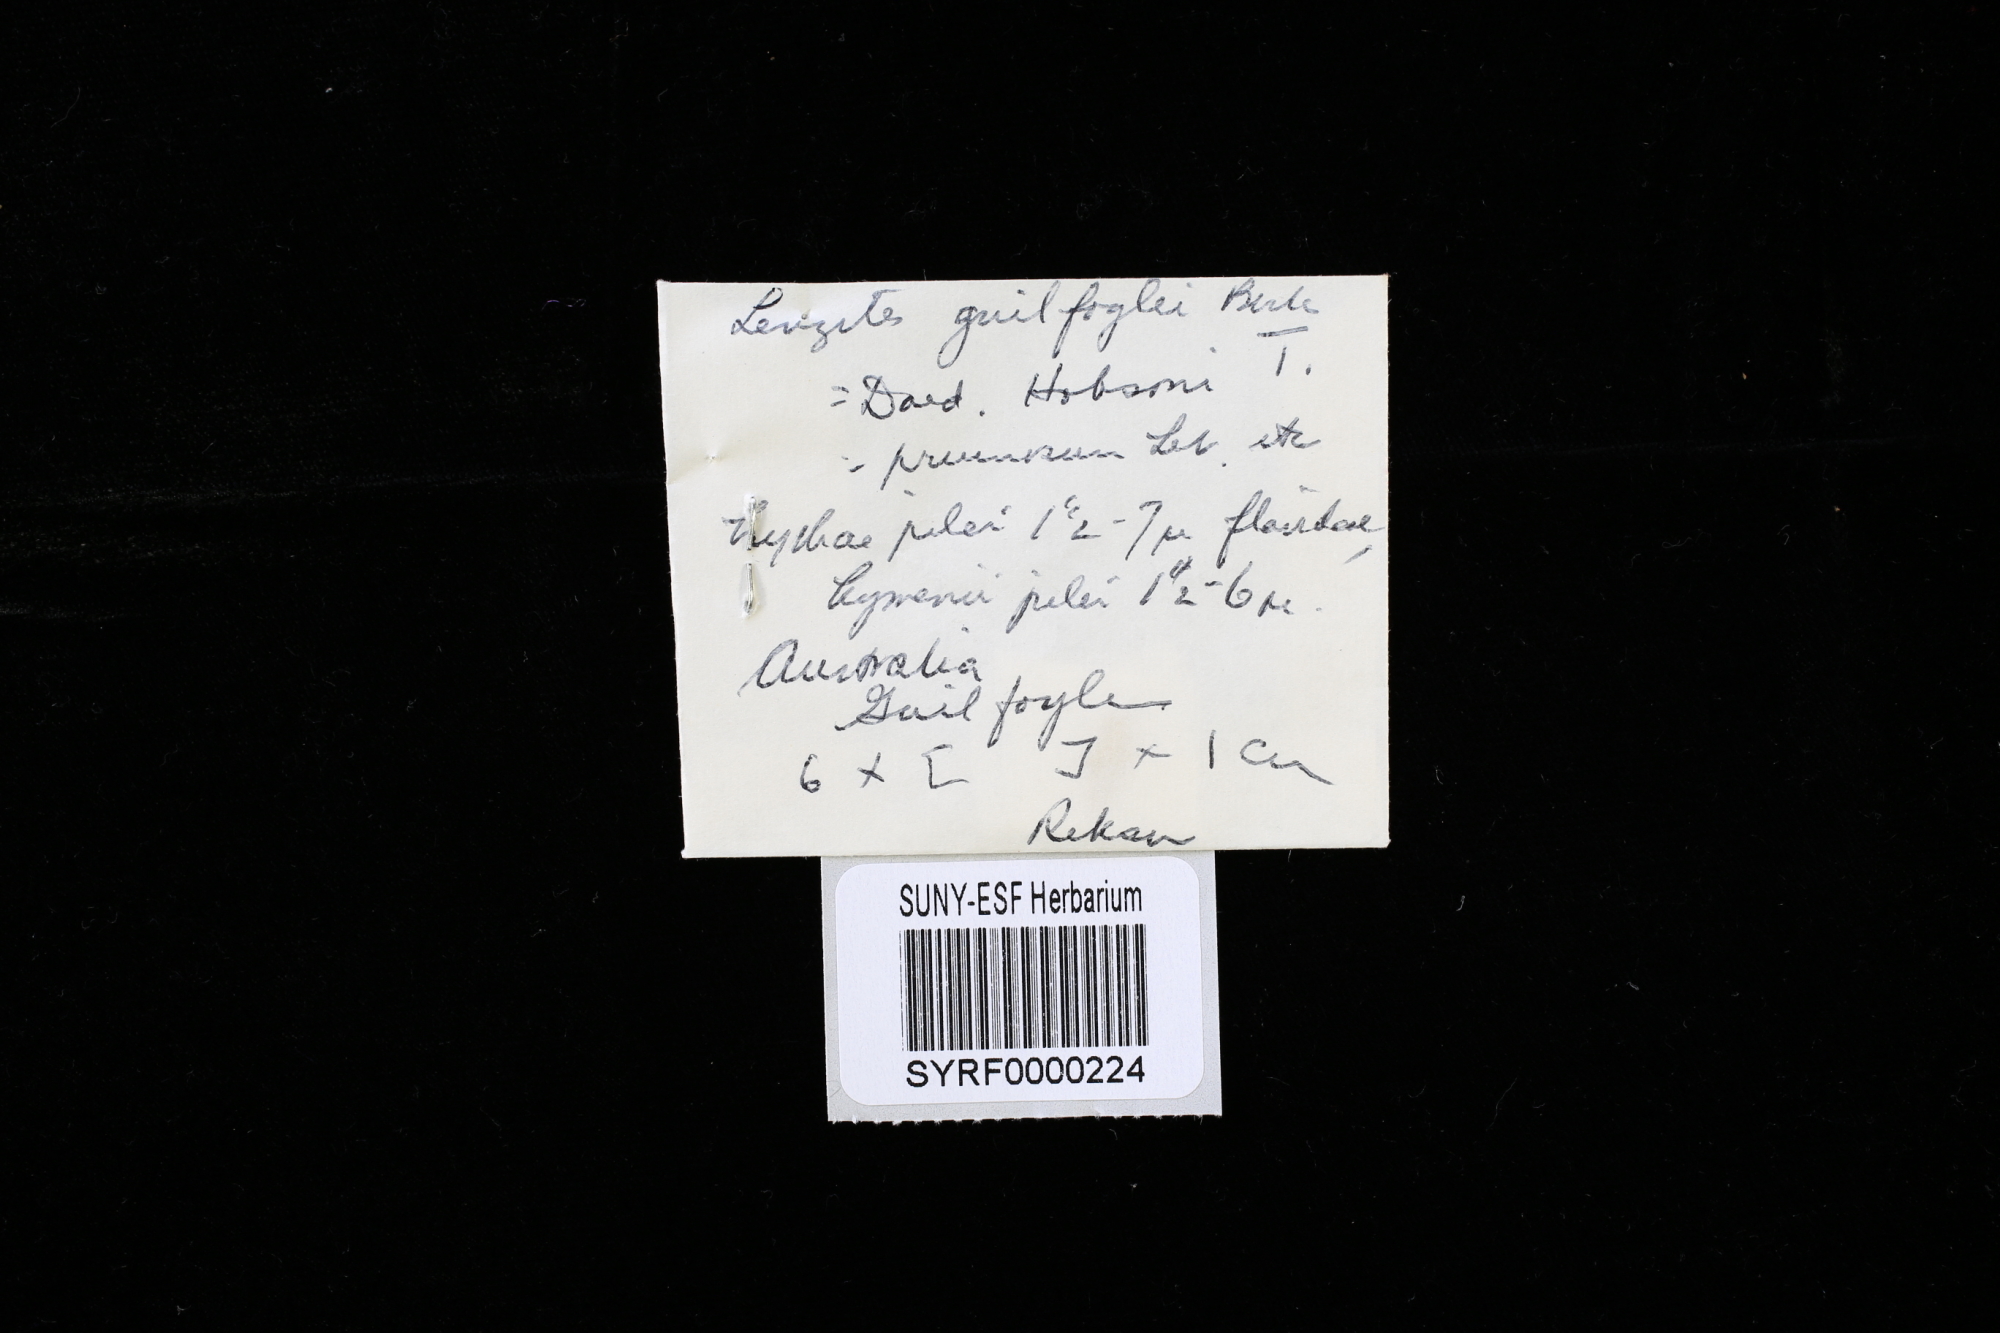 Lenzites guilfoylei Berk
T.
= Daed. Hobsoni
= pruinosum Lev. etc
Hyphae pilei 1½-7µ flavidae,
hymenii pilei 1½-6µ.
Australia
Guilfoyle
6 x [ ] x 1 cm
SUNY-ESF Herbarium
SYRF0000224